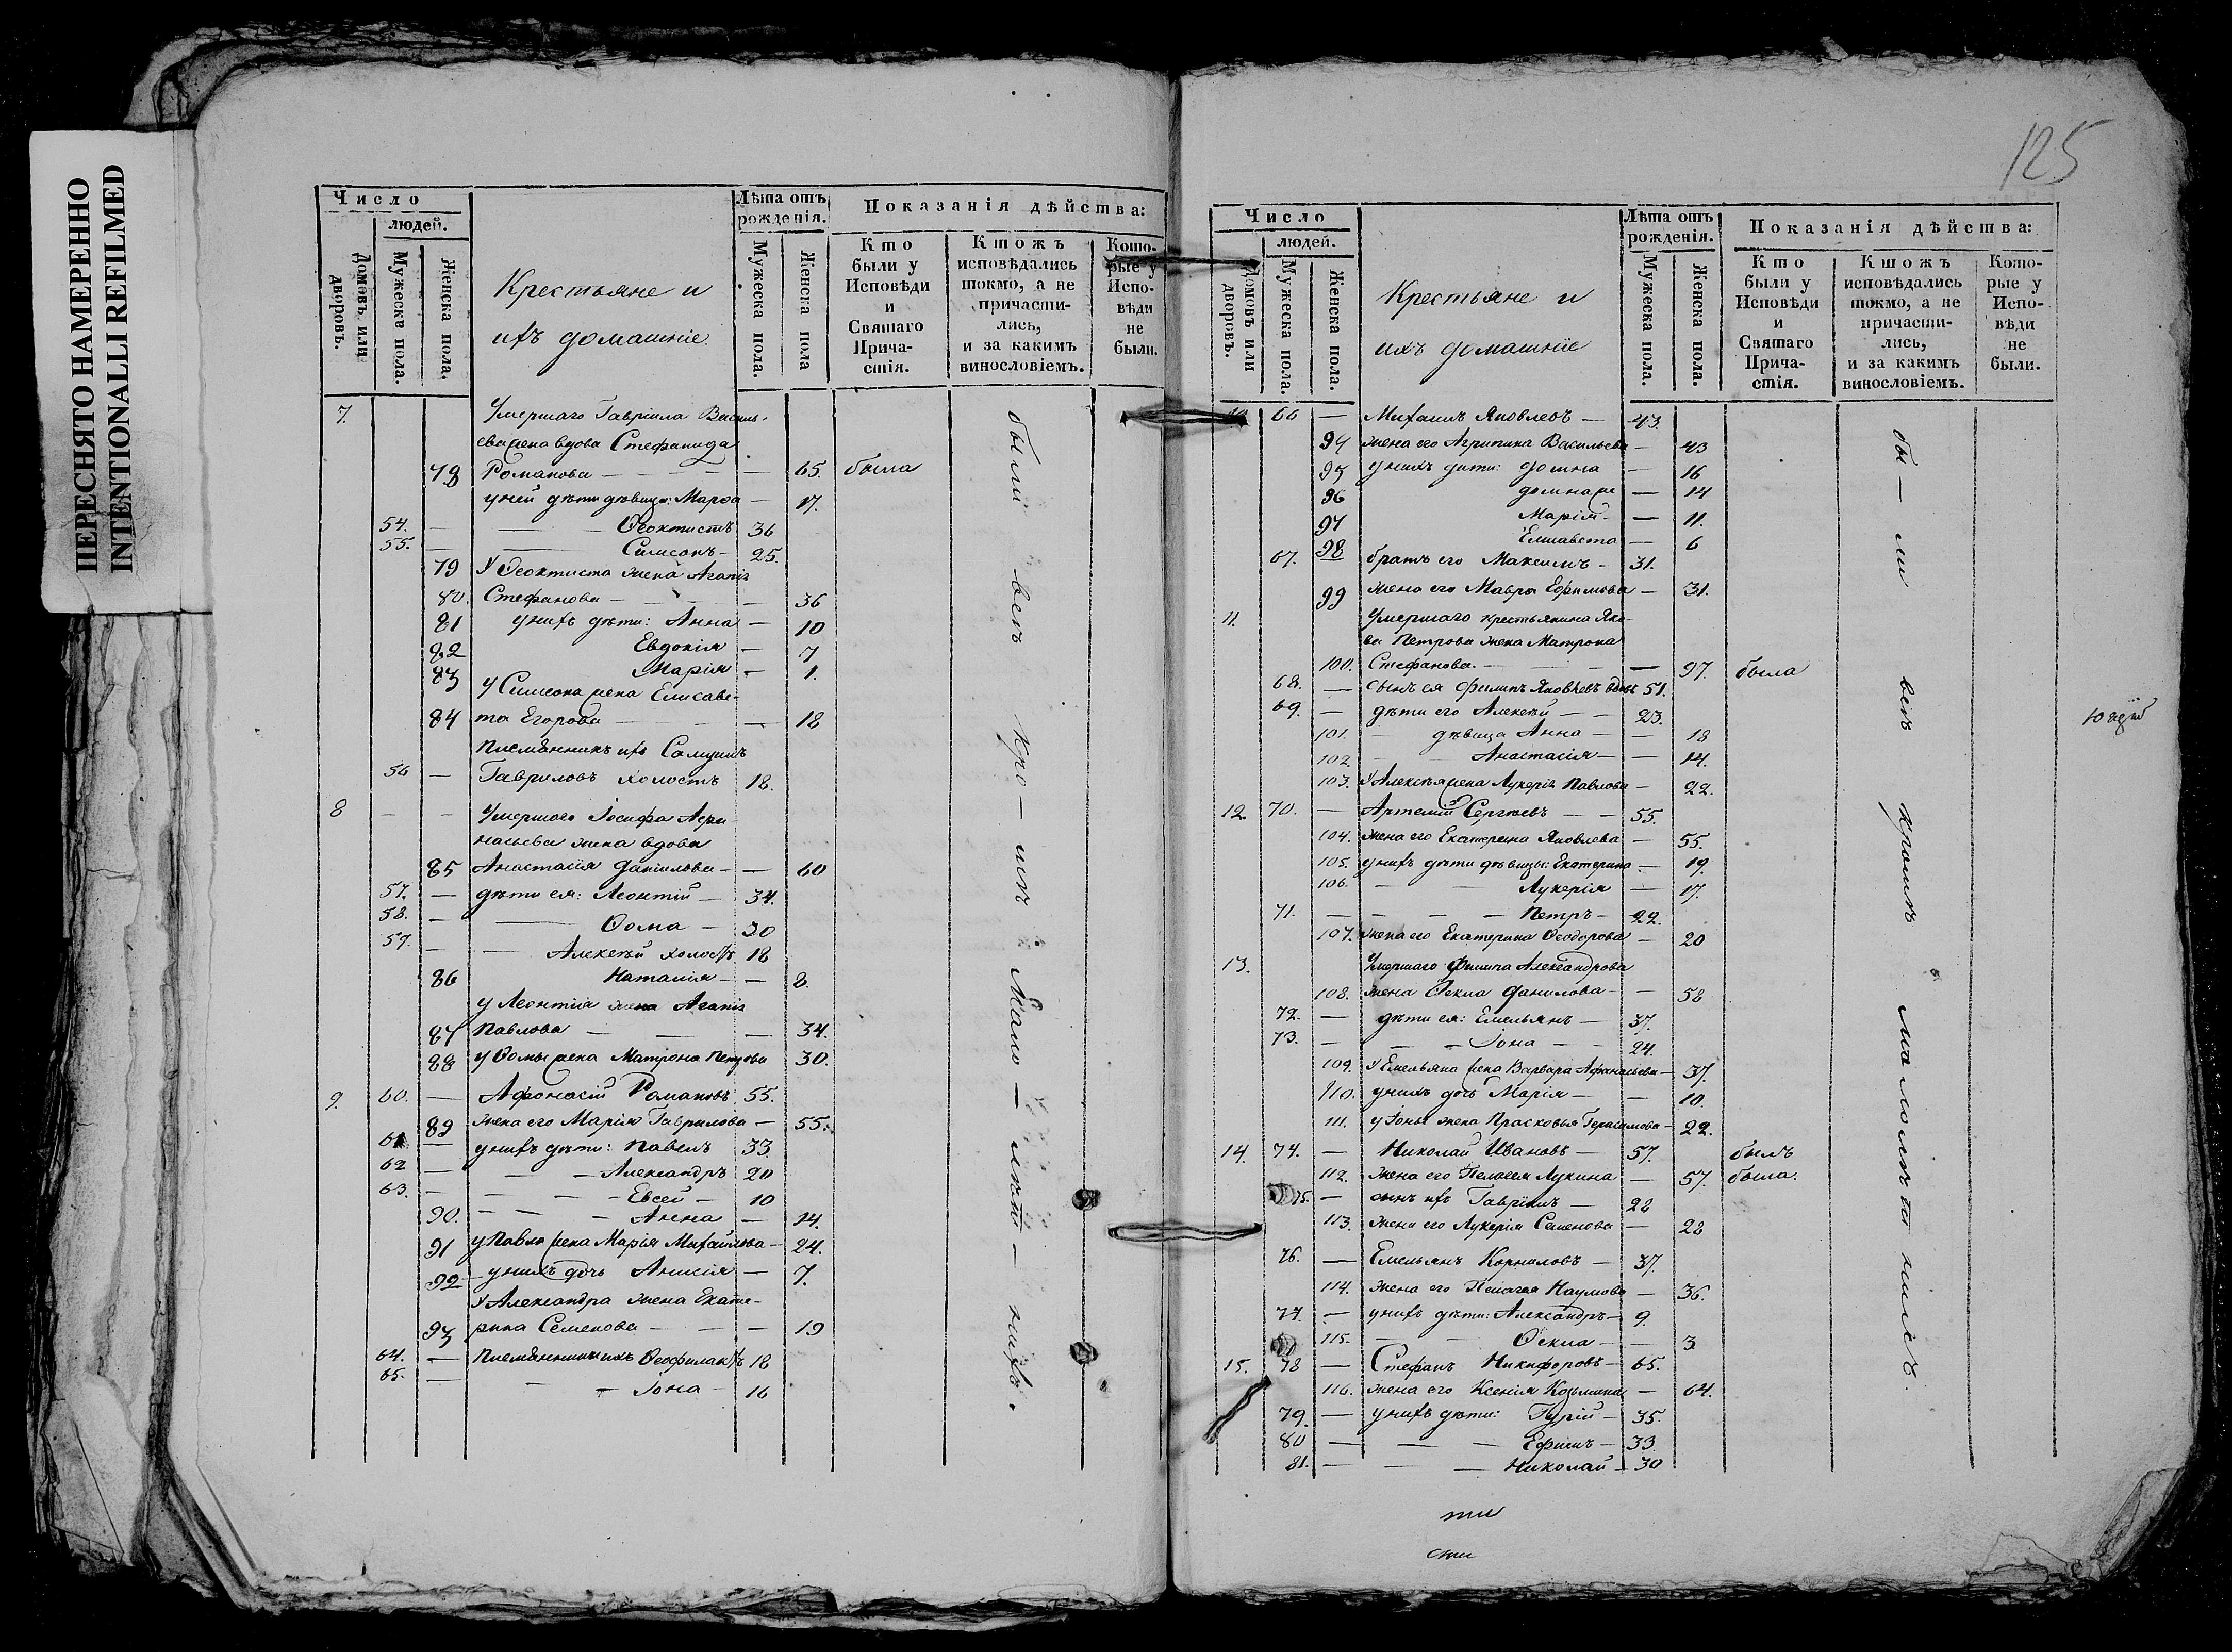 ПЕРЕСНЯТО НАМЕРЕННО
INTENTIONALLI REFILMED
Число
людей.
Домовъ или дворовъ.
Мужеска пола.
Женска пола.
Крестьяне и
ихъ домашніе.
Лѣта отъ рожденія.
Мужеска пола.
Женска пола
Показанія дѣйства:
Кто были у Исповѣди и Святаго Причастія.
Ктожъ исповѣдались токмо, а не причастились, и за какимъ винословіемъ.
Которые у Исповѣди не были.
7. Умершаго Гавріила Василь-
ева жена вдова Стефанида
78 Романова — — 65. была
у ней дѣти дѣвица: Марѳа — 17.
54. — — Ѳеоктистъ 36
55. — — Симеонъ — 25.
79 У Ѳеоктиста жена Агапія
80. Стефанова — — 36
81 у нихъ дѣти: Анна — 10
82 Евдокія — 7
83 Марія — 1.
у Симеона жена Елисаве-
84 та Егорова — — 18
Племянникъ ихъ
56 — Гавриловъ холостъ 18.
8 — — Умершаго Іосифа Аѳа-
насьева жена вдова
85 Анастасія Даніилова — — 60
57. — дѣти ея: Леонтій — 34.
58. — — Ѳома — 30
57. — — Алексѣй холостъ 18
86 Наталія — — 8.
у Леонтія жена Агапія
87 Павлова — — 34.
88 у Ѳомы жена Матрона Петрова 30.
9. 60. — Афонасій Романовъ 55.
89 жена его Марія Гаврилова — 55.
61 — у нихъ дѣти: Павелъ 33.
62 — — Александръ 20
63. — — Евсей — 10
90. — — Анна — 14.
91 у Павла жена Марія Михайлова — 24.
92 — у нихъ дочь Анисія — 7.
У Александра жена Екате-
93 рина Семенова — — 19
64. — Племянники ихъ Ѳеофилактъ 18
65. — — Іона — 16
были всѣ кро-мѣ мало-лѣт-нихъ.
125
Число
людей.
Домовъ или дворовъ.
Мужеска пола.
Женска пола.
Крестьяне и
ихъ домашніе
Лѣта отъ рожденія.
Мужеска пола.
Женска пола.
Показанія дѣйства:
Кто были у Исповѣди и Святаго Причастія.
Ктожъ исповѣдались токмо, а не причастились, и за какимъ винословіемъ.
Которые у Исповѣди не были.
10 66 — Михаилъ Яковлевъ — 43.
94 жена его Агрипина Васильева — 43
95 у нихъ дѣти: Домна — 16
96 Домна же — 14
97 Марія — 11.
98 Елисавета — 6
67. братъ его Максимъ — 31.
99 жена его Мавра Ефимова — 31.
11. Умершаго крестьянина Яко-
ва Петрова жена Матрона
100. Стефанова. — — 97. была
68. — сынъ ея Филипъ Яковлевъ вдовъ 51.
69. — дѣти его Алексѣй — — 23.
101. — дѣвица Анна — — 18
102. — Анастасія — — 14.
103. У Алексѣя жена Лукерія Павлова — 22.
12. 70. — Артемій Сергѣевъ — — 55.
104. жена его Екатерина Яковлева — 55.
105. у нихъ дѣти дѣвицы: Екатерина — 19.
106. — — Лукерія — 17.
71. — — — Петръ — 22.
107. жена его Екатерина Ѳеодорова — 20
13. Умершаго Филипа Александрова
108. жена Ѳекла Данилова — — 58
72. — дѣти ея: Емельянъ — 37.
73. — — Іона — — 24.
109. У Емельяна жена Варвара Афанасьева — 37.
110. у нихъ дочь Марія — — 10.
111. у Іоны жена Прасковья Герасимова — 22.
14. 74. — Николай Ивановъ — 57. былъ
112. жена его Пелагея Лукина — 57. была.
75. — сынъ ихъ Гавріилъ — 28
113. жена его Лукерія Семенова — 28
76. — Емельянъ Корниловъ — 37.
114. жена его Пелагея Наумова — 36.
77. — у нихъ дѣти: Александръ — 9.
115. — — Ѳекла — — 3.
15. 78 — Стефанъ Никифоровъ — 65.
116. жена его Ксенія Козьмина — 64.
79. — у нихъ дѣти: Гурій — 35.
80 — — — Ефимъ — 33.
81. — — — Николай — 30
бы-ли всѣ кромѣ малолѣтнихъ.
ти
сти